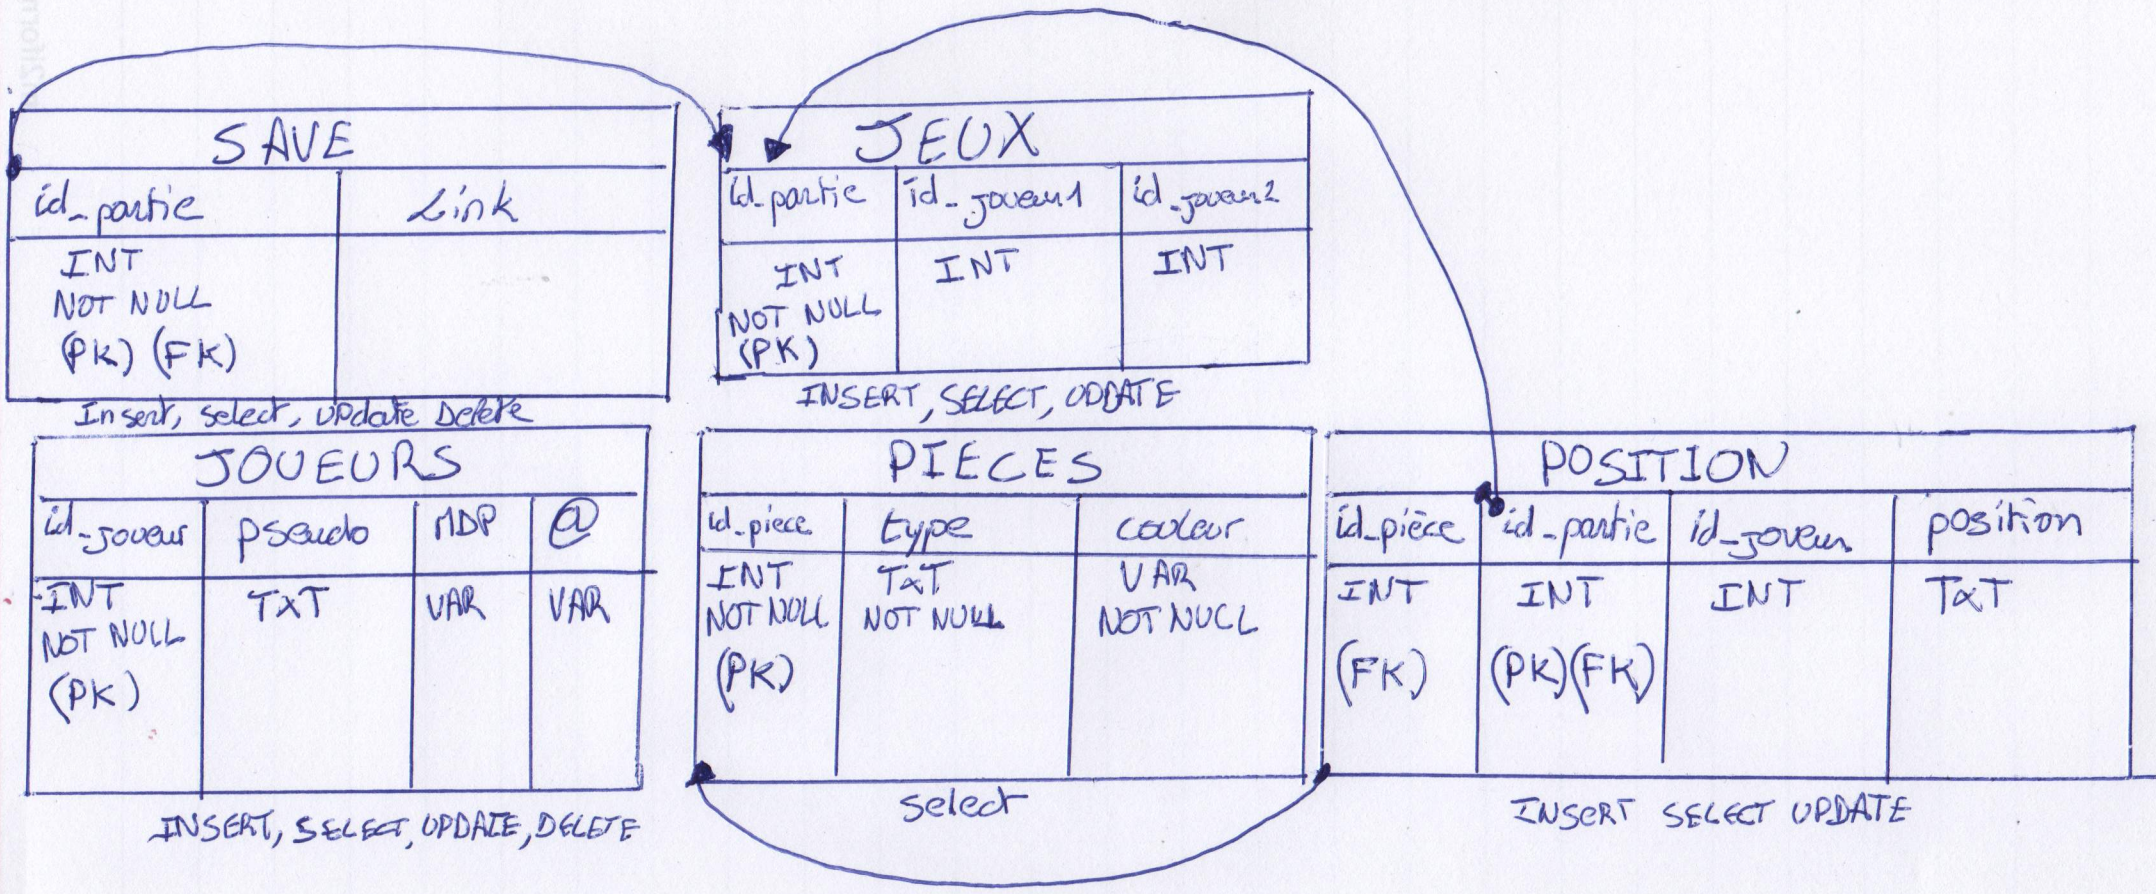 SAVE
id_partie Link
INT
NOT NULL
(PK) (FK)
Insert, select, update Delete
JEUX
id_partie id_joueur1 id_joueur2
INT INT INT
NOT NULL
(PK)
INSERT, SELECT, UPDATE
JOUEURS
id_joueur pseudo MDP @
INT TXT VAR VAR
NOT NULL
(PK)
INSERT, SELECT, UPDATE, DELETE
PIECES
id_piece type couleur
INT TXT VAR
NOT NULL NOT NULL NOT NULL
(PK)
select
POSITION
id_pièce id_partie id_joueur position
INT INT INT TXT
(FK) (PK)(FK)
INSERT SELECT UPDATE